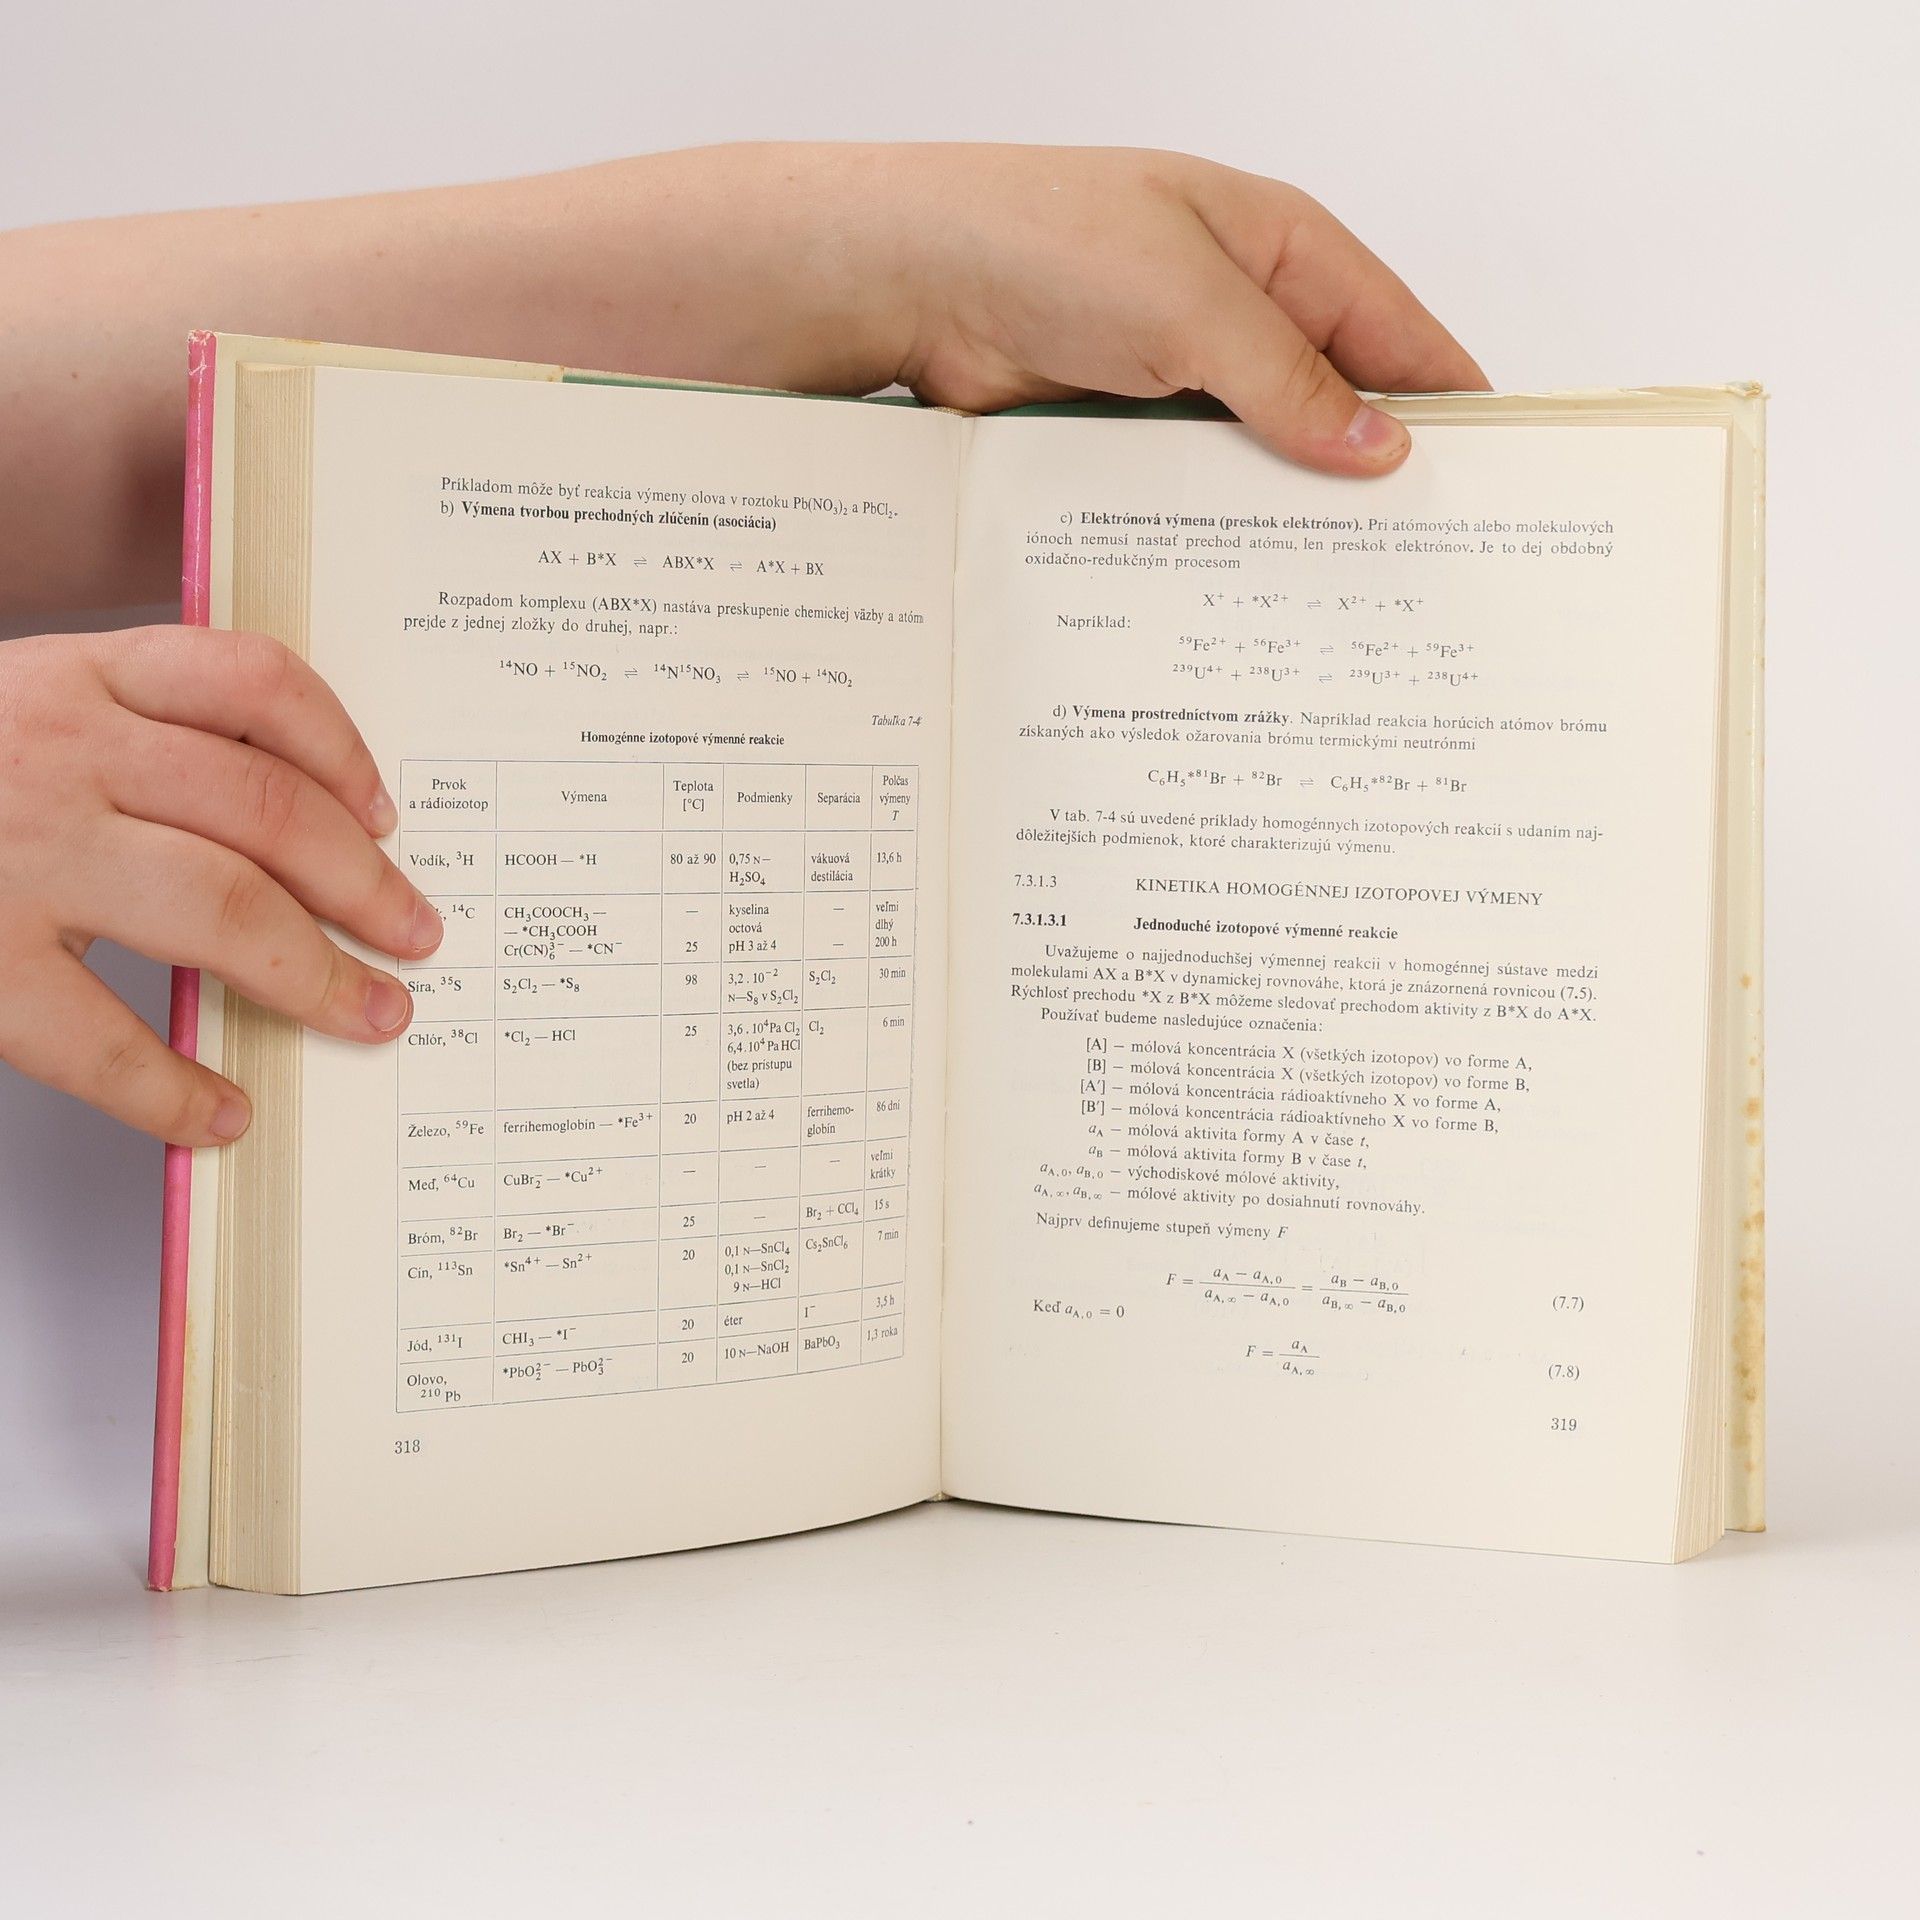 Príkladom môže byť reakcia výmeny olova v roztoku Pb(NO₃)₂ a PbCl₂.
b) Výmena tvorbou prechodných zlúčenín (asociácia)
AX + B*X ⇌ ABX*X ⇌ A*X + BX
Rozpadom komplexu (ABX*X) nastáva preskupenie chemickej väzby a atóm
prejde z jednej zložky do druhej, napr.:
¹⁴NO + ¹⁵NO₂ ⇌ ¹⁴N¹⁵NO₃ ⇌ ¹⁵NO + ¹⁴NO₂
Tabuľka 7-4
Homogénne izotopové výmenné reakcie
Prvok a rádioizotop Výmena Teplota [°C] Podmienky Separácia Polčas výmeny T
Vodík, ³H HCOOH — *H 80 až 90 0,75 N— H₂SO₄ vákuová destilácia 13,6 h
, ¹⁴C CH₃COOCH₃ — — *CH₃COOH — kyselina octová — veľmi dlhý
Cr(CN)₆³⁻ — *CN⁻ 25 pH 3 až 4 — 200 h
Síra, ³⁵S S₂Cl₂ — *S₈ 98 3,2 . 10⁻² N—S₈ v S₂Cl₂ S₂Cl₂ 30 min
Chlór, ³⁸Cl *Cl₂ — HCl 25 3,6 . 10⁴ Pa Cl₂ 6,4 . 10⁴ Pa HCl (bez prístupu svetla) Cl₂ 6 min
Železo, ⁵⁹Fe ferrihemoglobín — *Fe³⁺ 20 pH 2 až 4 ferrihemo- globín 86 dní
Meď, ⁶⁴Cu CuBr₂⁻ — *Cu²⁺ — — — veľmi krátky
Bróm, ⁸²Br Br₂ — *Br⁻ 25 — Br₂ + CCl₄ 15 s
Cín, ¹¹³Sn *Sn⁴⁺ — Sn²⁺ 20 0,1 N—SnCl₄ 0,1 N—SnCl₂ 9 N—HCl Cs₂SnCl₆ 7 min
Jód, ¹³¹I CHI₃ — *I⁻ 20 éter I⁻ 3,5 h
Olovo, ²¹⁰Pb *PbO₂²⁻ — PbO₃²⁻ 20 10 N—NaOH BaPbO₃ 1,3 roka
318
c) Elektrónová výmena (preskok elektrónov). Pri atómových alebo molekulových
iónoch nemusí nastať prechod atómu, len preskok elektrónov. Je to dej obdobný
oxidačno-redukčným procesom
X⁺ + *X²⁺ ⇌ X²⁺ + *X⁺
Napríklad:
⁵⁹Fe²⁺ + ⁵⁶Fe³⁺ ⇌ ⁵⁶Fe²⁺ + ⁵⁹Fe³⁺
²³⁹U⁴⁺ + ²³⁸U³⁺ ⇌ ²³⁹U³⁺ + ²³⁸U⁴⁺
d) Výmena prostredníctvom zrážky. Napríklad reakcia horúcich atómov brómu
získaných ako výsledok ožarovania brómu termickými neutrónmi
C₆H₅*⁸¹Br + ⁸²Br ⇌ C₆H₅*⁸²Br + ⁸¹Br
V tab. 7-4 sú uvedené príklady homogénnych izotopových reakcií s udaním naj-
dôležitejších podmienok, ktoré charakterizujú výmenu.
7.3.1.3 KINETIKA HOMOGÉNNEJ IZOTOPOVEJ VÝMENY
7.3.1.3.1 Jednoduché izotopové výmenné reakcie
Uvažujeme o najjednoduchšej výmennej reakcii v homogénnej sústave medzi
molekulami AX a B*X v dynamickej rovnováhe, ktorá je znázornená rovnicou (7.5).
Rýchlosť prechodu *X z B*X môžeme sledovať prechodom aktivity z B*X do A*X.
Používať budeme nasledujúce označenia:
[A] – mólová koncentrácia X (všetkých izotopov) vo forme A,
[B] – mólová koncentrácia X (všetkých izotopov) vo forme B,
[A′] – mólová koncentrácia rádioaktívneho X vo forme A,
[B′] – mólová koncentrácia rádioaktívneho X vo forme B,
a_A – mólová aktivita formy A v čase t,
a_B – mólová aktivita formy B v čase t,
a_A,0, a_B,0 – východiskové mólové aktivity,
a_A,∞, a_B,∞ – mólové aktivity po dosiahnutí rovnováhy.
Najprv definujeme stupeň výmeny F
F = (a_A − a_A,0)/(a_A,∞ − a_A,0) = (a_B − a_B,0)/(a_B,∞ − a_B,0) (7.7)
Keď a_A,0 = 0
F = a_A/a_A,∞ (7.8)
319